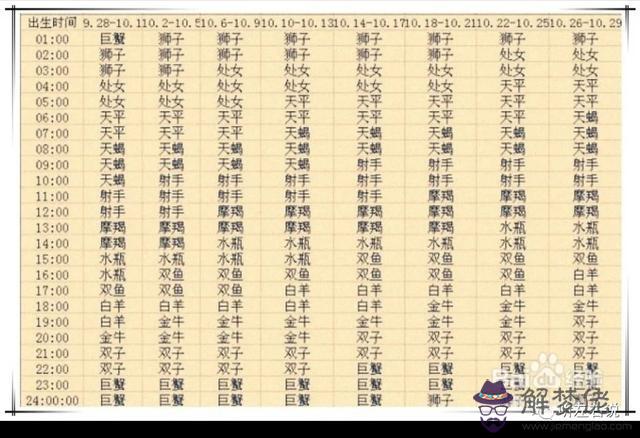 出生时间 9.28-10.1 10.2-10.5 10.6-10.9 10.10-10.13 10.14-10.17 10.18-10.21 10.22-10.25 10.26-10.29
01:00 巨蟹 狮子 狮子 狮子 狮子 狮子 狮子 狮子
02:00 狮子 狮子 狮子 狮子 狮子 狮子 处女 处女
03:00 狮子 狮子 处女 处女 处女 处女 处女 处女
04:00 处女 处女 处女 处女 处女 处女 天平 天平
05:00 处女 处女 处女 天平 天平 天平 天平 天平
06:00 天平 天平 天平 天平 天平 天平 天平 天蝎
07:00 天平 天平 天平 天蝎 天蝎 天蝎 天蝎 天蝎
08:00 天蝎 天蝎 天蝎 天蝎 天蝎 天蝎 天蝎 天蝎
09:00 天蝎 天蝎 天蝎 天蝎 射手 射手 射手 射手
10:00 天蝎 射手 射手 射手 射手 射手 射手 射手
11:00 射手 射手 射手 射手 射手 摩羯 摩羯 摩羯
12:00 射手 射手 摩羯 摩羯 摩羯 摩羯 摩羯 摩羯
13:00 摩羯 摩羯 摩羯 摩羯 摩羯 摩羯 水瓶 水瓶
14:00 摩羯 摩羯 水瓶 水瓶 水瓶 水瓶 水瓶 水瓶
15:00 水瓶 水瓶 水瓶 水瓶 双鱼 双鱼 双鱼 双鱼
16:00 水瓶 双鱼 双鱼 双鱼 双鱼 双鱼 双鱼 白羊
17:00 双鱼 双鱼 双鱼 白羊 白羊 白羊 白羊 白羊
18:00 白羊 白羊 白羊 白羊 白羊 金牛 金牛 金牛
19:00 白羊 金牛 金牛 金牛 金牛 金牛 金牛 双子
20:00 金牛 金牛 金牛 金牛 双子 双子 双子 双子
21:00 双子 双子 双子 双子 双子 双子 双子 双子
22:00 双子 双子 双子 双子 巨蟹 巨蟹 巨蟹 巨蟹
23:00 巨蟹 巨蟹 巨蟹 巨蟹 巨蟹 巨蟹 巨蟹
24:00:00 巨蟹 巨蟹 巨蟹 巨蟹 巨蟹 狮子
解梦佬
www.jiemenglao.com